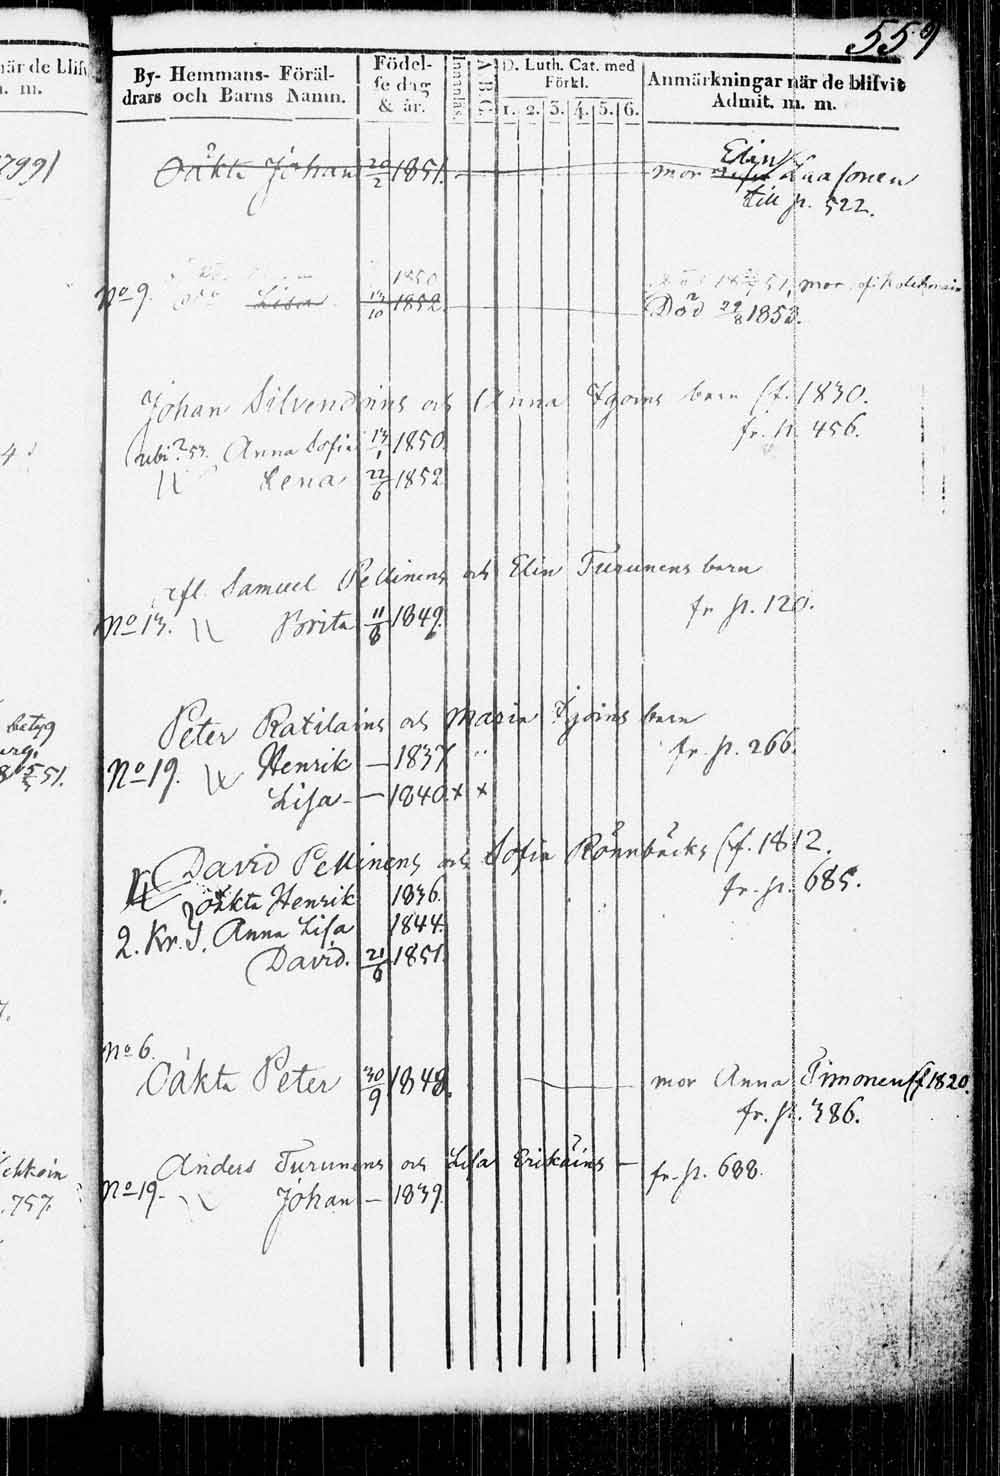 559
när de blifv
n. m.
By- Hemmans- Föräl-
drars och Barns Namn.
Födel-
se dag
& år.
Innanläs.
A B C.
D. Luth. Cat. med
Förkl.
1. 2. 3. 4. 5. 6.
Anmärkningar när de blifvit
Admit. m. m.
1799)
Oäkta Johan 20/2 1851. mor Elin Laasonen
till p. 522.
1850
No 9. Lisa 13/10 1852. Död 29/8 1853.
Johan Silvendoins och Anna Igoins barn (f. 1830.
fr. p. 456.
ubi? 53. Anna Sofia 13/1 1850.
Lena 22/6 1852
Samuel Pellinens och Elin Turunens barn
fr p. 120.
No 13. Brita 11/8 1849.
betyg
51.
Peter Ratilains och Maria Igoins barn
fr. p. 266.
No 19. Henrik — 1837 "
Lisa — 1840. x x
David Pellinens och Sofia Rönnbäcks (f. 1812.
fr. p. 685.
oäkta Henrik 1836.
2. Kr. J. Anna Lisa 1844.
David. 21/6 1851.
No 6.
Oäkta Peter 30/9 1848. mor Anna Timonen (f 1820.
fr. p. 386.
Anders Turunens och Lisa Erikäins — fr. p. 688.
No 19. Johan — 1839.
757.